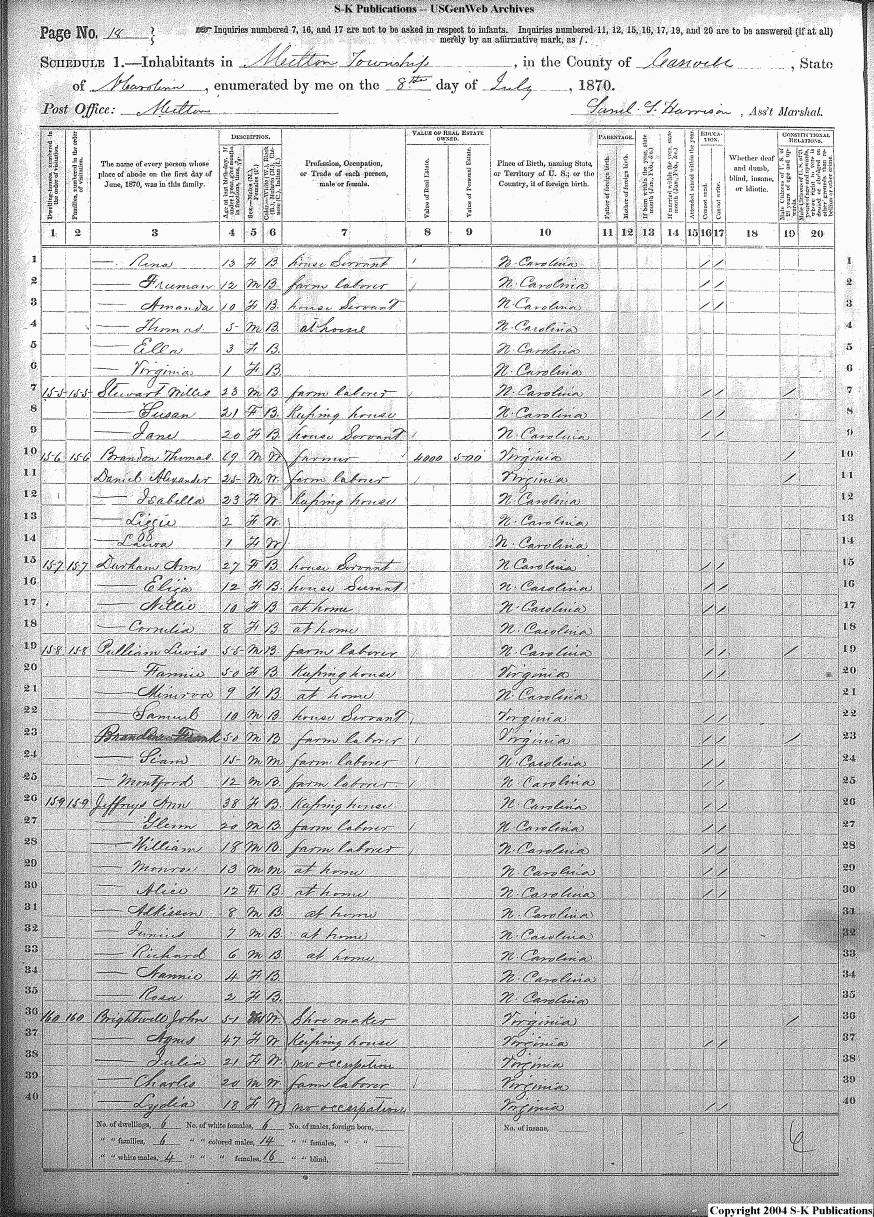 S-K Publications -- USGenWeb Archives
Page No. 18
Inquiries numbered 7, 16, and 17 are not to be asked in respect to infants. Inquiries numbered 11, 12, 15, 16, 17, 19, and 20 are to be answered (if at all) merely by an affirmative mark, as /.
SCHEDULE 1.—Inhabitants in Milton Township, in the County of Caswell, State
of N Carolina, enumerated by me on the 8th day of July, 1870.
Post Office: Milton Saml S. Harrison, Ass't Marshal.
DESCRIPTION. VALUE OF REAL ESTATE OWNED. PARENTAGE. EDUCATION. CONSTITUTIONAL RELATIONS.
Dwelling-houses, numbered in the order of visitation.
Families, numbered in the order of visitation.
The name of every person whose place of abode on the first day of June, 1870, was in this family.
Profession, Occupation, or Trade of each person, male or female.
Value of Real Estate.
Value of Personal Estate.
Place of Birth, naming State, or Territory of U. S.; or the Country, if of foreign birth.
Father of foreign birth.
Mother of foreign birth.
Attended school within the year.
Cannot read.
Cannot write.
Whether deaf and dumb, blind, insane, or idiotic.
1 2 3 4 5 6 7 8 9 10 11 12 13 14 15 16 17 18 19 20
1 — Rena 13 F B house Servant N. Carolina / / 1
2 — Fruman 12 M B farm laborer N. Carolina / / 2
3 — Amanda 10 F B house Servant N. Carolina / / 3
4 — Thomas 5 M B at home N. Carolina 4
5 — Ella 3 F B N. Carolina 5
6 — Virginia 1 F B N. Carolina 6
7 155 155 Stewart Willis 23 M B farm laborer N. Carolina / / / 7
8 — Susan 21 F B Keeping house N. Carolina / / 8
9 — Jane 20 F B house Servant N. Carolina / / 9
10 156 156 Brandon Thomas 69 M W farmer 4000 500 Virginia / 10
11 Daniel Alexander 25 M W farm laborer Virginia / 11
12 — Isabella 23 F W Keeping house N. Carolina 12
13 — Lizzie 2 F W N. Carolina 13
14 — Laura 1 F W N. Carolina 14
15 157 157 Durham Ann 27 F B house Servant N Carolina / / 15
16 — Eliza 12 F B house Servant N. Carolina / / 16
17 — Nellie 10 F B at home N. Carolina / / 17
18 — Cornelia 8 F B at home N. Carolina 18
19 158 158 Pulliam Lewis 55 M B farm laborer N. Carolina / / / 19
20 — Fannie 50 F B Keeping house Virginia / / 20
21 — Minerva 9 F B at home N. Carolina 21
22 — Samuel 10 M B house Servant Virginia / / 22
23 Brandon Frank 50 M B farm laborer Virginia / / / 23
24 — Siam 15 M M farm laborer N. Carolina / / 24
25 — Montford 12 M B farm laborer N. Carolina / / 25
26 159 159 Jeffreys Ann 38 F B Keeping house N. Carolina / / 26
27 — Glenn 20 M B farm laborer N. Carolina / / 27
28 — William 18 M B farm laborer N. Carolina / / 28
29 — Monroe 13 M M at home N. Carolina / / 29
30 — Alice 12 F B at home N. Carolina / / 30
31 — Adkisson 8 M B at home N. Carolina 31
32 — Junius 7 M B at home N. Carolina 32
33 — Richard 6 M B at home N. Carolina 33
34 — Nannie 4 F B N. Carolina 34
35 — Rosa 2 F B N. Carolina 35
36 160 160 Brightwell John 51 W Shoe maker Virginia / 36
37 — Agnes 47 F W Keeping house Virginia / / 37
38 — Julia 21 F W no occupation Virginia 38
39 — Charles 20 M W farm laborer Virginia 39
40 — Lydia 18 F W no occupation Virginia / / 40
No. of dwellings, 6 No. of white females, 6 No. of males, foreign born, No. of insane, 6
" " families, 6 " " colored males, 14 " " females, " "
" " white males, 4 " " " females, 16 " " blind,
Copyright 2004 S-K Publications